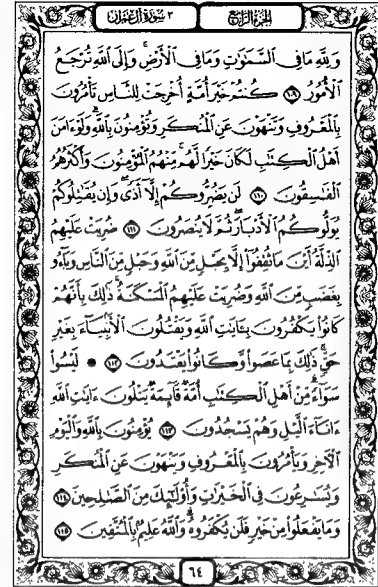 الجزء الرابع
٣ سورة آل عمران
وَلِلَّهِ مَا فِي السَّمَٰوَٰتِ وَمَا فِي الْأَرْضِ ۚ وَإِلَى اللَّهِ تُرْجَعُ
الْأُمُورُ ١٠٩ كُنتُمْ خَيْرَ أُمَّةٍ أُخْرِجَتْ لِلنَّاسِ تَأْمُرُونَ
بِالْمَعْرُوفِ وَتَنْهَوْنَ عَنِ الْمُنكَرِ وَتُؤْمِنُونَ بِاللَّهِ ۗ وَلَوْ ءَامَنَ
أَهْلُ الْكِتَٰبِ لَكَانَ خَيْرًا لَّهُم ۚ مِّنْهُمُ الْمُؤْمِنُونَ وَأَكْثَرُهُمُ
الْفَٰسِقُونَ ١١٠ لَن يَضُرُّوكُمْ إِلَّا أَذًى ۖ وَإِن يُقَٰتِلُوكُمْ
يُوَلُّوكُمُ الْأَدْبَارَ ثُمَّ لَا يُنصَرُونَ ١١١ ضُرِبَتْ عَلَيْهِمُ
الذِّلَّةُ أَيْنَ مَا ثُقِفُوٓا إِلَّا بِحَبْلٍ مِّنَ اللَّهِ وَحَبْلٍ مِّنَ النَّاسِ وَبَآءُو
بِغَضَبٍ مِّنَ اللَّهِ وَضُرِبَتْ عَلَيْهِمُ الْمَسْكَنَةُ ۚ ذَٰلِكَ بِأَنَّهُمْ
كَانُوا يَكْفُرُونَ بِـَٔايَٰتِ اللَّهِ وَيَقْتُلُونَ الْأَنۢبِيَآءَ بِغَيْرِ
حَقٍّ ۚ ذَٰلِكَ بِمَا عَصَوا وَّكَانُوا يَعْتَدُونَ ١١٢ ۞ لَيْسُوا
سَوَآءً ۗ مِّنْ أَهْلِ الْكِتَٰبِ أُمَّةٌ قَآئِمَةٌ يَتْلُونَ ءَايَٰتِ اللَّهِ
ءَانَآءَ الَّيْلِ وَهُمْ يَسْجُدُونَ ١١٣ يُؤْمِنُونَ بِاللَّهِ وَالْيَوْمِ
الْءَاخِرِ وَيَأْمُرُونَ بِالْمَعْرُوفِ وَيَنْهَوْنَ عَنِ الْمُنكَرِ
وَيُسَٰرِعُونَ فِي الْخَيْرَٰتِ وَأُولَٰٓئِكَ مِنَ الصَّٰلِحِينَ ١١٤
وَمَا يَفْعَلُوا مِنْ خَيْرٍ فَلَن يُكْفَرُوهُ ۗ وَاللَّهُ عَلِيمٌۢ بِالْمُتَّقِينَ ١١٥
٦٤